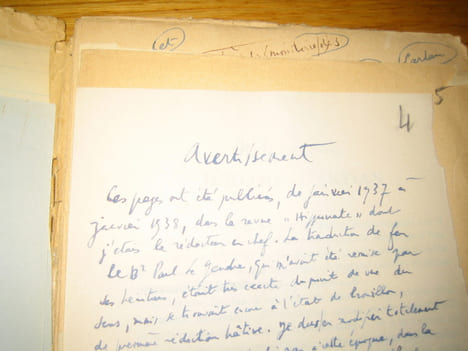 Cet
Cardan
4 5
Avertissement
Ces pages ont été publiées, de janvier 1937 à
janvier 1938, dans la revue " " dont
j'étais le rédacteur en chef. La traduction de feu
le Dr Paul le Gendre, qui m'avait été remise par
ses héritiers, était très exacte du point de vue du
sens, mais se trouvait encore à l'état de brouillon,
de première rédaction hâtive. Je dus en modifier totalement
à cette époque, dans la